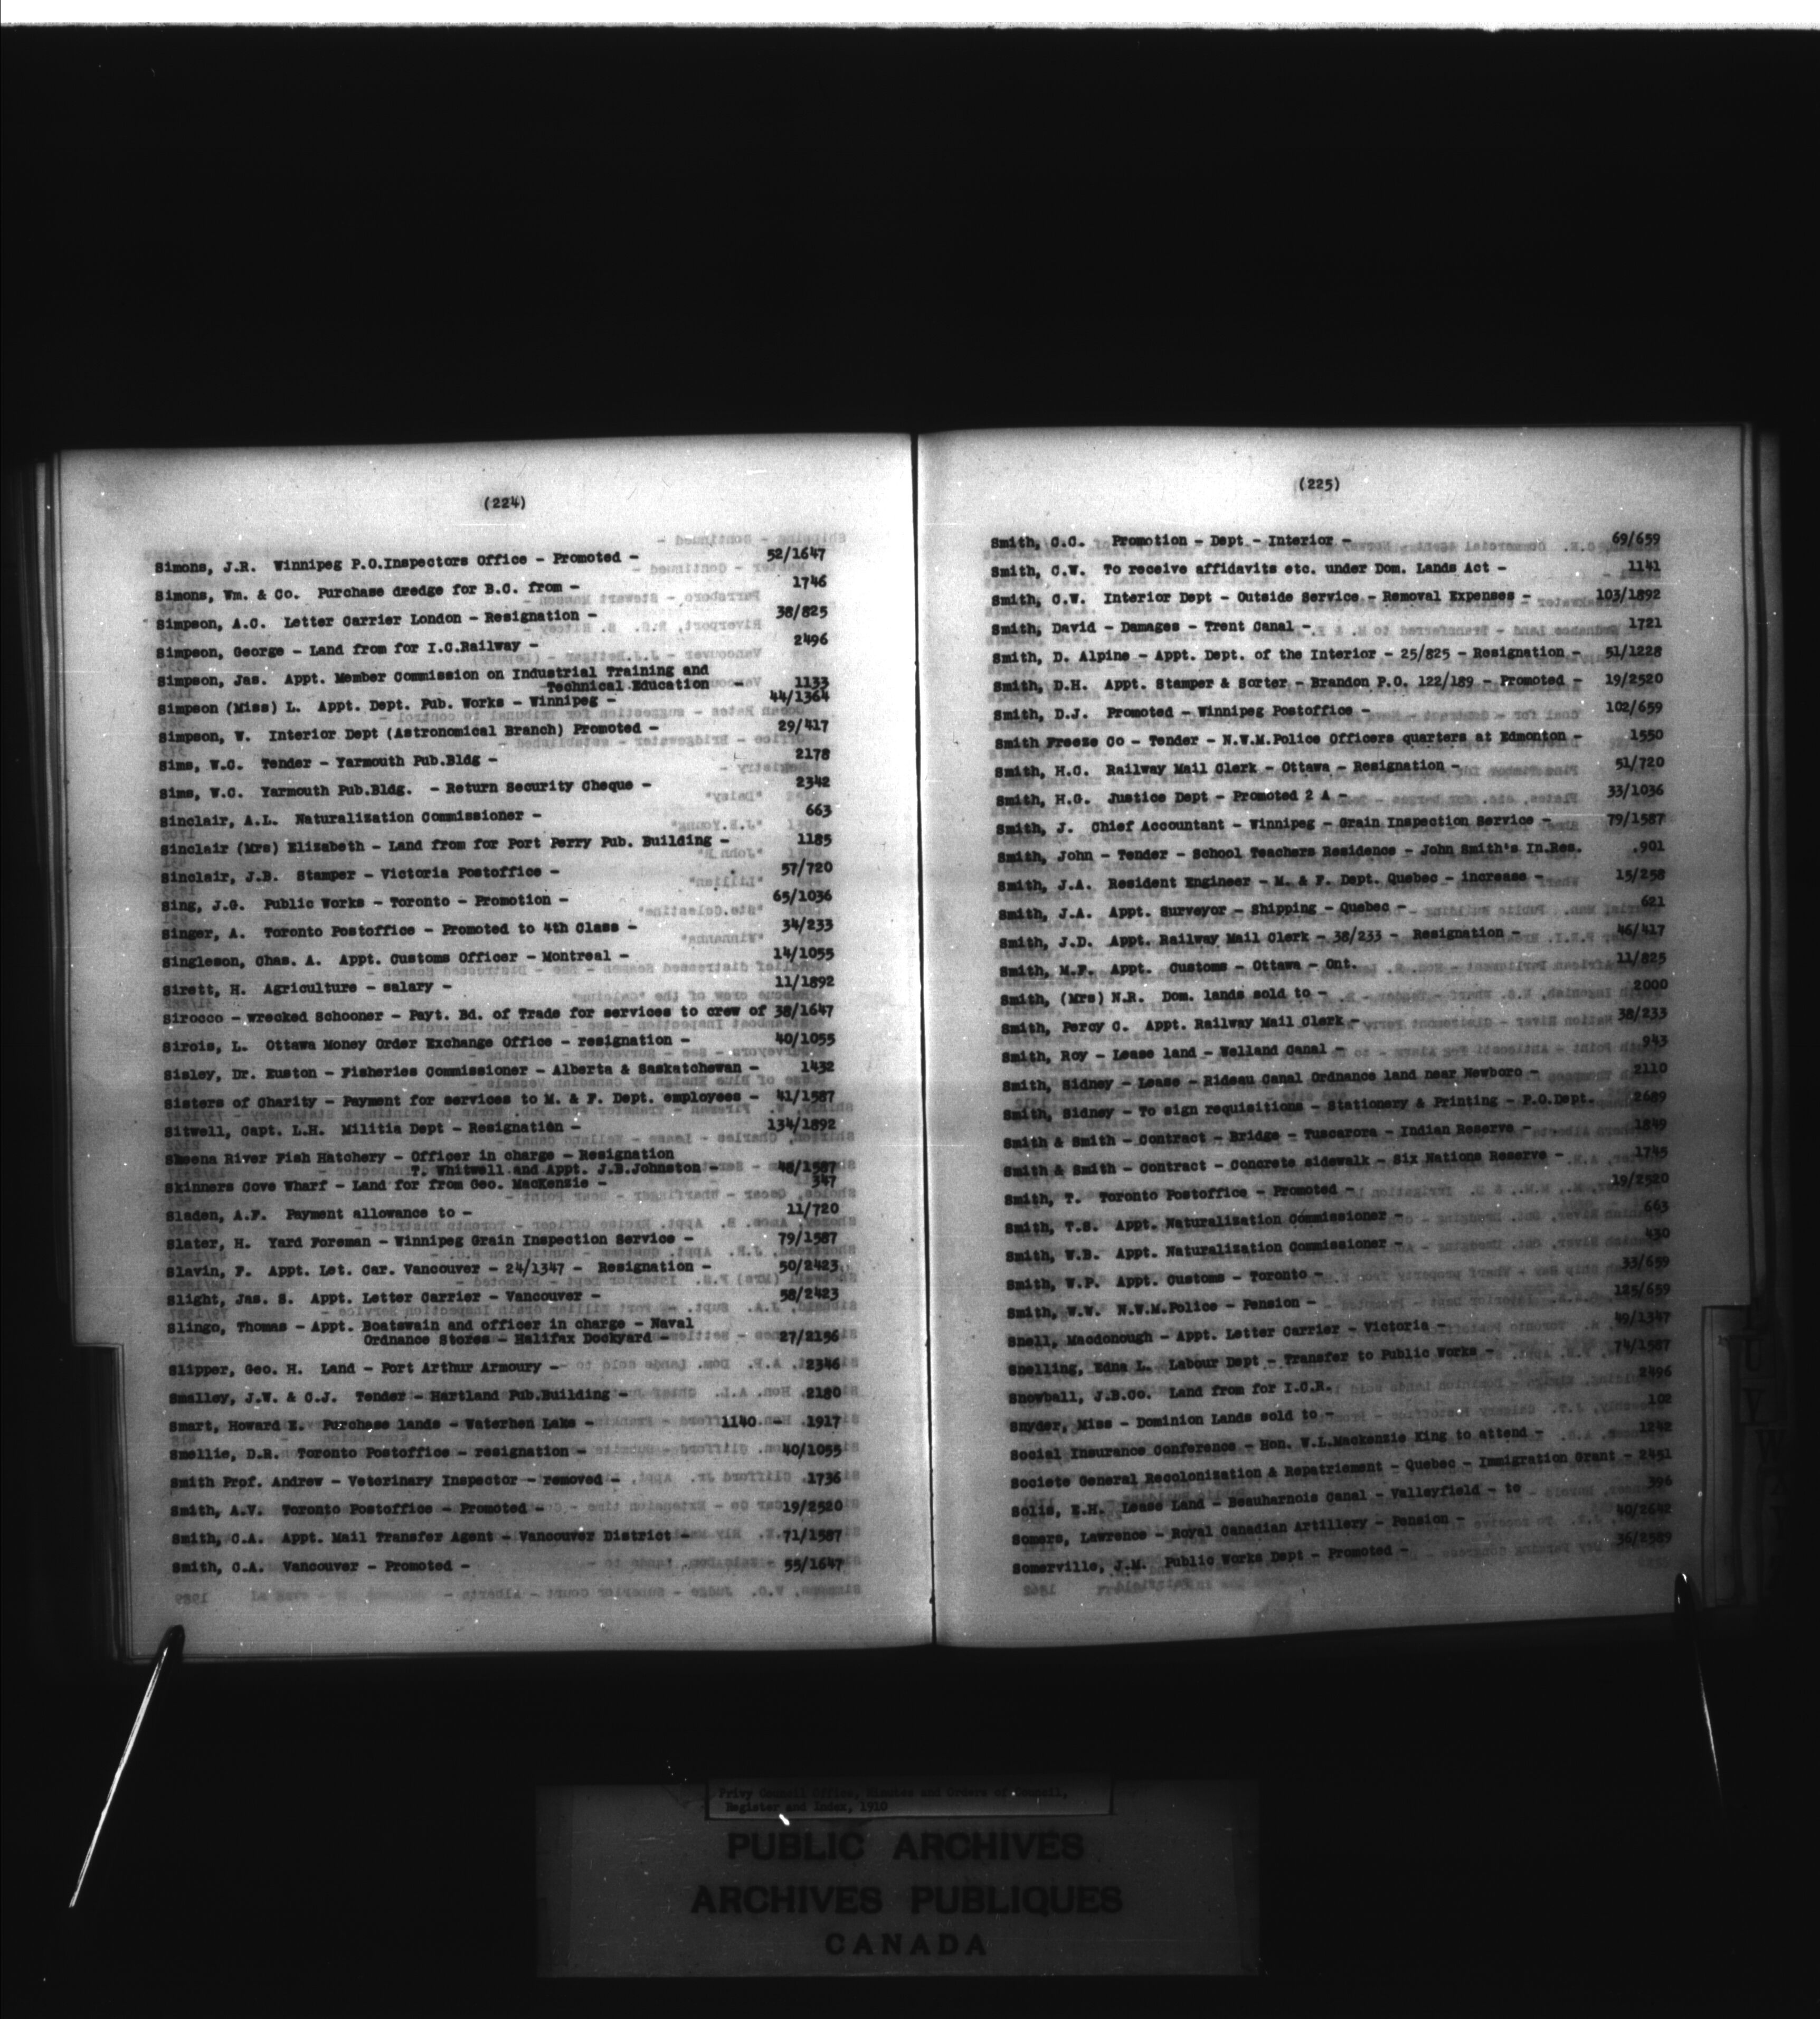 (224)
Simons, J.R. Winnipeg P.O.Inspectors Office - Promoted - 52/1647
Simons, Wm. & Co. Purchase dredge for B.C. from - 1746
Simpson, A.C. Letter Carrier London - Resignation - 38/825
Simpson, George - Land from for I.C.Railway - 2496
Simpson, Jas. Appt. Member Commission on Industrial Training and
Technical Education - 1133
Simpson (Miss) L. Appt. Dept. Pub. Works - Winnipeg - 44/1364
Simpson, W. Interior Dept (Astronomical Branch) Promoted - 29/417
Sims, W.C. Tender - Yarmouth Pub.Bldg - 2178
Sims, W.C. Yarmouth Pub.Bldg. - Return Security Cheque - 2342
Sinclair, A.L. Naturalization Commissioner - 663
Sinclair (Mrs) Elizabeth - Land from for Port Perry Pub. Building - 1185
Sinclair, J.B. Stamper - Victoria Postoffice - 57/720
Sing, J.G. Public Works - Toronto - Promotion - 65/1036
Singer, A. Toronto Postoffice - Promoted to 4th Class - 34/233
Singleson, Chas. A. Appt. Customs Officer - Montreal - 14/1055
Sirett, H. Agriculture - salary - 11/1892
Sirocco - wrecked Schooner - Payt. Bd. of Trade for services to crew of 38/1647
Sirois, L. Ottawa Money Order Exchange Office - resignation - 40/1055
Sisley, Dr. Euston - Fisheries Commissioner - Alberta & Saskatchewan - 1432
Sisters of Charity - Payment for services to M. & F. Dept. employees - 41/1587
Sitwell, Capt. L.H. Militia Dept - Resignation - 134/1892
Skeena River Fish Hatchery - Officer in charge - Resignation
T. Whitwell and Appt. J.B.Johnston - 48/1587
Skinners Cove Wharf - Land for from Geo. MacKenzie - 347
Sladen, A.F. Payment allowance to - 11/720
Slater, H. Yard Foreman - Winnipeg Grain Inspection Service - 79/1587
Slavin, F. Appt. Let. Car. Vancouver - 24/1347 - Resignation - 50/2423
Slight, Jas. S. Appt. Letter Carrier - Vancouver - 58/2423
Slingo, Thomas - Appt. Boatswain and officer in charge - Naval
Ordnance Stores - Halifax Dockyard - 27/2156
Slipper, Geo. H. Land - Port Arthur Armoury - 2346
Smalley, J.W. & C.J. Tender - Hartland Pub.Building - 2180
Smart, Howard E. Purchase lands - Waterhen Lake - 1140 - 1917
Smellie, D.R. Toronto Postoffice - resignation - 40/1055
Smith Prof. Andrew - Veterinary Inspector - removed - 1736
Smith, A.V. Toronto Postoffice - Promoted - 19/2520
Smith, C.A. Appt. Mail Transfer Agent - Vancouver District - 71/1587
Smith, C.A. Vancouver - Promoted - 55/1647
(225)
Smith, C.C. Promotion - Dept - Interior - 69/659
Smith, C.W. To receive affidavits etc. under Dom. Lands Act - 1141
Smith, C.W. Interior Dept - Outside Service - Removal Expenses - 103/1892
Smith, David - Damages - Trent Canal - 1721
Smith, D. Alpine - Appt. Dept. of the Interior - 25/825 - Resignation - 51/1228
Smith, D.H. Appt. Stamper & Sorter - Brandon P.O. 122/189 - Promoted - 19/2520
Smith, D.J. Promoted - Winnipeg Postoffice - 102/659
Smith Freeze Co - Tender - N.W.M.Police Officers quarters at Edmonton - 1550
Smith, H.C. Railway Mail Clerk - Ottawa - Resignation - 51/720
Smith, H.G. Justice Dept - Promoted 2 A - 33/1036
Smith, J. Chief Accountant - Winnipeg - Grain Inspection Service - 79/1587
Smith, John - Tender - School Teachers Residence - John Smith's In.Res. 901
Smith, J.A. Resident Engineer - M. & F. Dept. Quebec - increase - 15/258
Smith, J.A. Appt. Surveyor - Shipping - Quebec - 621
Smith, J.D. Appt. Railway Mail Clerk - 38/233 - Resignation - 46/417
Smith, M.F. Appt. Customs - Ottawa - Ont. 11/825
Smith, (Mrs) N.R. Dom. lands sold to - 2000
Smith, Percy C. Appt. Railway Mail Clerk - 38/233
Smith, Roy - Lease land - Welland Canal - 943
Smith, Sidney - Lease - Rideau Canal Ordnance land near Newboro - 2110
Smith, Sidney - To sign requisitions - Stationery & Printing - P.O.Dept. 2689
Smith & Smith - Contract - Bridge - Tuscarora - Indian Reserve - 1849
Smith & Smith - Contract - Concrete sidewalk - Six Nations Reserve - 1745
Smith, T. Toronto Postoffice - Promoted - 19/2520
Smith, T.S. Appt. Naturalization Commissioner - 663
Smith, W.B. Appt. Naturalization Commissioner - 430
Smith, W.P. Appt. Customs - Toronto - 33/659
Smith, W.W. N.W.M.Police - Pension - 125/659
Snell, Macdonough - Appt. Letter Carrier - Victoria - 49/1347
Snelling, Edna L. Labour Dept - Transfer to Public Works - 74/1587
Snowball, J.B.Co. Land from for I.C.R. 2496
Snyder, Miss - Dominion Lands sold to - 102
Social Insurance Conference - Hon. W.L.Mackenzie King to attend - 1242
Societe General Recolonization & Repatriement - Quebec - Immigration Grant - 2451
Solis, E.H. Lease Land - Beauharnois Canal - Valleyfield - to 396
Somers, Lawrence - Royal Canadian Artillery - Pension - 40/2642
Somerville, J.M. Public Works Dept - Promoted - 36/2589
Privy Council Office, Minutes and Orders of Council,
Register and Index, 1910
PUBLIC ARCHIVES
ARCHIVES PUBLIQUES
CANADA